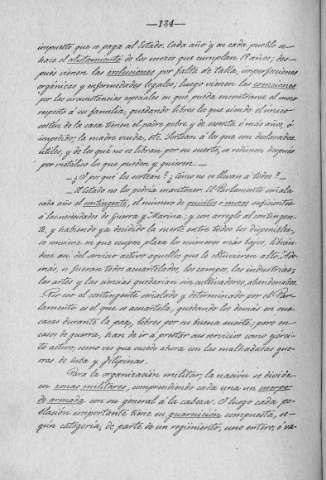 —134—
impuesto que se paga al Estado. Cada año y en cada pueblo se
hace el alistamiento de los mozos que cumplan 19 años; des-
pués vienen las exclusiones por falta de talla, imperfecciones
orgánicas y enfermedades legales, luego vienen las exenciones
por las circunstancias especiales en que pueda encontrarse el mozo
respecto á su familia, quedando libres los que siendo el único
sostén de la casa tienen el padre pobre y de sesenta ó más años, ó
impedido; la madre viuda, etc. Sortean á los que son declarados
útiles, y de los que no se libran por su suerte, se redimen después
por metálico los que pueden y quieren.—
—¿Y por qué los sortean? ¿Cómo no se llevan á todos?—
—El Estado no los podría mantener. El Parlamento señala
cada año el contingente, el número de quintos ó mozos suficientes
á las necesidades de Guerra y Marina; y con arreglo al contingen-
te, y habiendo ya decidido la suerte entre todos los disponibles,
se asume en que ocupen plaza los números más bajos, librán-
dose en del servicio activo aquellos que le obtuvieron alto. Ade-
más, si fueran todos acuartelados, los campos, las industrias,
las artes y las ciencias quedarían sin cultivadores, abandonados.
Por eso el contingente señalado y determinado por el Par-
lamento es el que se acuartela, quedando los demás en sus
casas durante la paz, libres por su buena suerte; pero en
caso de guerra, han de ir á prestar sus servicios como ejérci-
to activo; como es que sucede ahora con las malhadadas gue-
rras de Cuba y Filipinas.
Para la organización militar, la nación se divide
en zonas militares, comprendiendo cada una un cuerpo
de armada con su general á la cabeza. Y luego cada po-
blación importante tiene su guarnición compuesta, se-
gún categoría, de parte de un regimiento, uno entero, ó va-